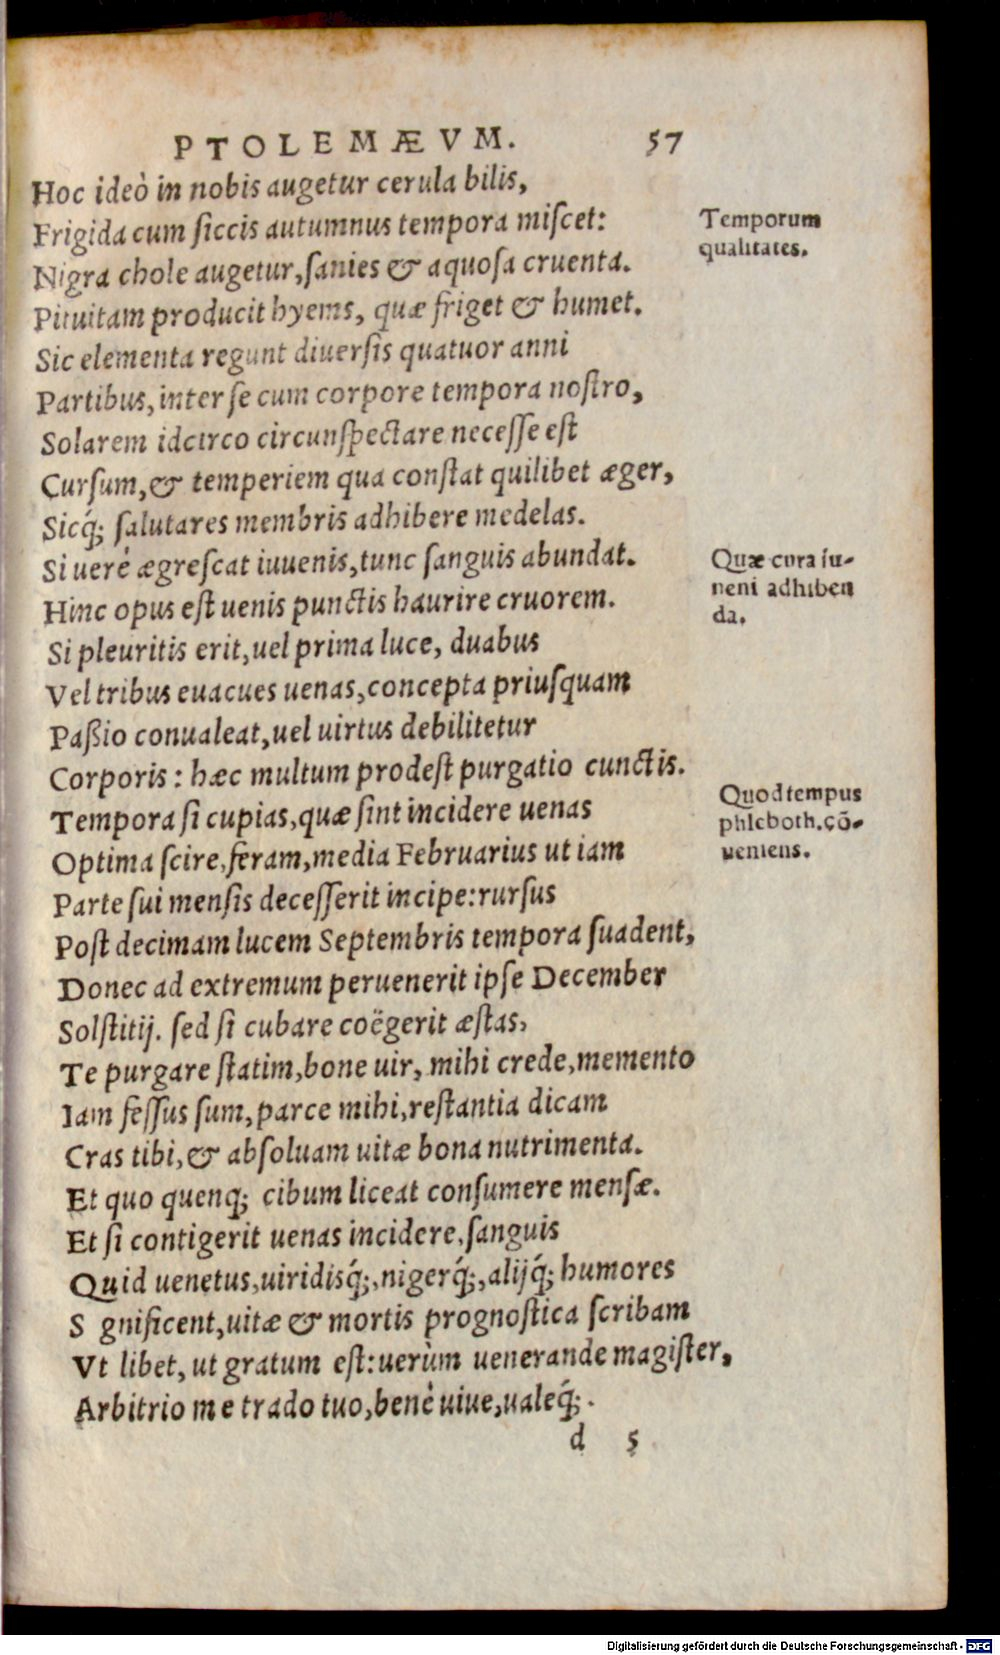 PTOLEMÆVM. 57
Hoc ideò in nobis augetur cerula bilis,
Frigida cum ſiccis autumnus tempora miſcet:
Temporum
qualitates.
Nigra chole augetur, ſanies & aquoſa cruenta.
Pituitam producit hyems, quæ friget & humet.
Sic elementa regunt diuerſis quatuor anni
Partibus, inter ſe cum corpore tempora noſtro,
Solarem idcirco circunſpectare neceſſe eſt
Curſum, & temperiem qua conſtat quilibet æger,
Sicq́; ſalutares membris adhibere medelas.
Si uerè ægreſcat iuuenis, tunc ſanguis abundat.
Quæ cura iu-
neni adhiben
da.
Hinc opus eſt uenis punctis haurire cruorem.
Si pleuritis erit, uel prima luce, duabus
Vel tribus euacues uenas, concepta priuſquam
Paßio conualeat, uel uirtus debilitetur
Corporis: hæc multum prodeſt purgatio cunctis.
Tempora ſi cupias, quæ ſint incidere uenas
Quod tempus
phleboth. cō-
ueniens.
Optima ſcire, feram, media Februarius ut iam
Parte ſui menſis deceſſerit incipe: rurſus
Poſt decimam lucem Septembris tempora ſuadent,
Donec ad extremum peruenerit ipſe December
Solſtitij. ſed ſi cubare coëgerit æſtas,
Te purgare ſtatim, bone uir, mihi crede, memento
Iam feſſus ſum, parce mihi, reſtantia dicam
Cras tibi, & abſoluam uitæ bona nutrimenta.
Et quo quenq; cibum liceat conſumere menſæ.
Et ſi contigerit uenas incidere, ſanguis
Quid uenetus, uiridisq́;, nigerq́;, alijq́; humores
S gnificent, uitæ & mortis prognoſtica ſcribam
Vt libet, ut gratum eſt: uerùm uenerande magiſter,
Arbitrio me trado tuo, benè uiue, ualeq́;.
d 5
Digitalisierung gefördert durch die Deutsche Forschungsgemeinschaft - DFG